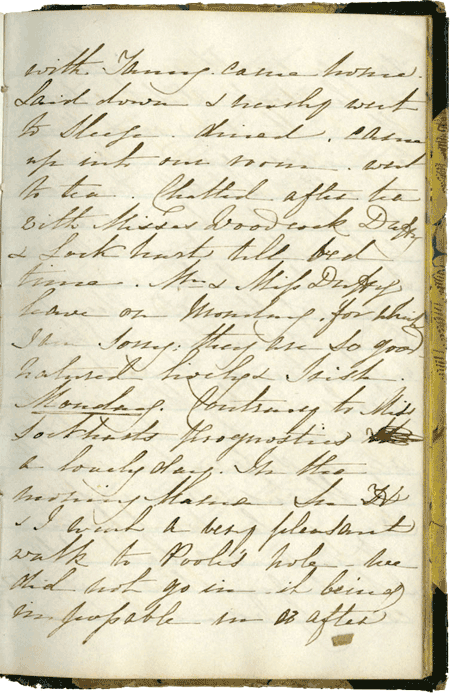 with Fanny. came home.
Laid down & nearly went
to sleep. dined. came
up into our room. went
to tea. Chatted after tea
with Misses Woodcock Duffy
& Lockhart till bed
time. Mrs & Miss Duffy
leave on Monday, for which
I am sorry: they are so good
natured Irish.
Monday. Contrary to Miss
Lockharts Prognostics
a lovely day. In the
morning Mama
& I went a very pleasant
walk to Pool's hole we
did not go in it being
impossible in after